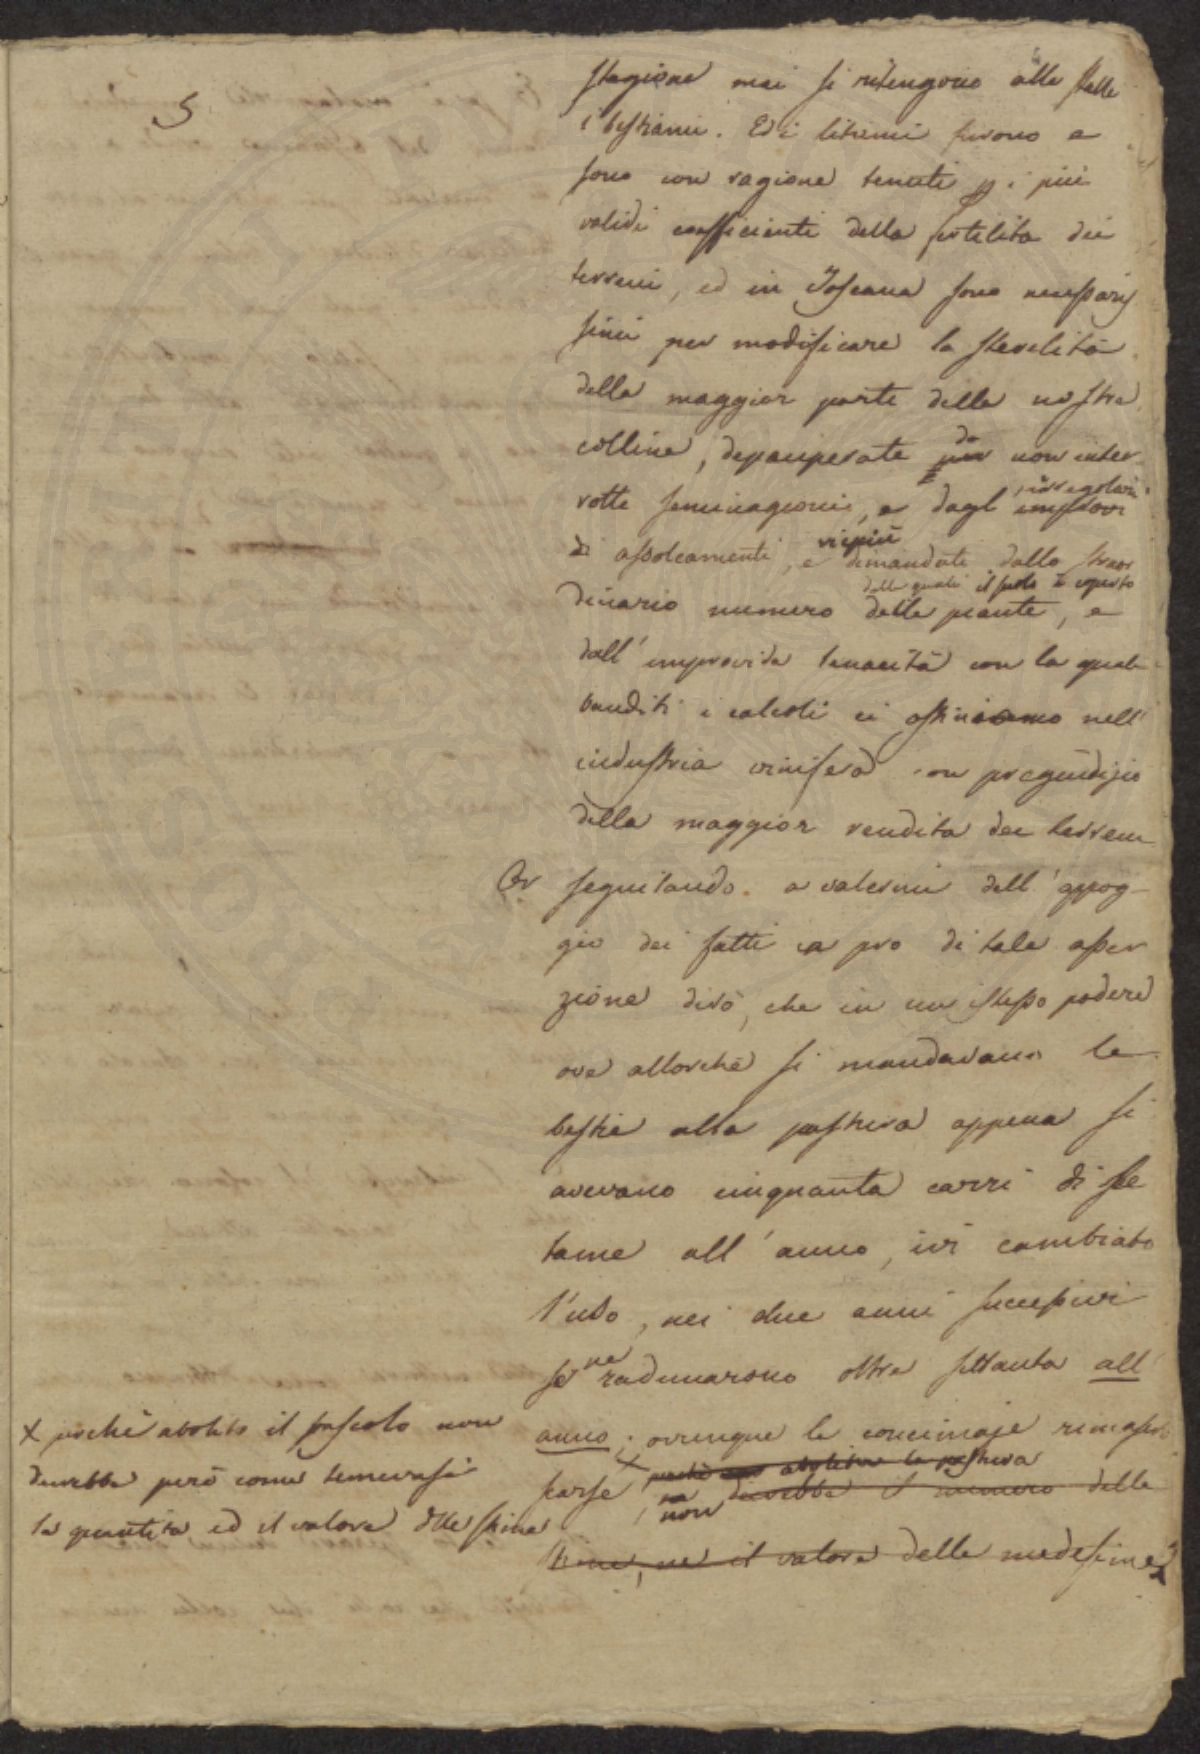 5
stagione mai si ritengono alle stalle
i bestiami. Ed i letimi furono e
sono con ragione tenuti p i più
validi coefficienti della fertilità dei
terreni, ed in Toscana sono necessaris
simi per modificare la sterilità
della maggior parte delle nostre
colline, depauperate da non inter
rotte seminagioni, e dagl' irregolari
avvicendamenti, e vieppiù dallo straor
delle quali il suolo è coperto
dinario numero delle piante, e
dall' improvida tenacità con la quale
banditi i calcoli ci ostiniamo nell'
industria vinifera con pregiudizio
della maggior rendita dei terreni
Or seguitando a valermi dell' appog-
gio dei fatti a pro di tale asser
zione dirò, che in un istesso podere
ove allorchè si mandavano le
bestie alla pastura appena si
avevano cinquanta carri di ste
tame all' anno, ivi cambiato
l'uso, nei due anni successivi
se ne radunarono oltre settanta all'
anno; ovunque le concimaje rimaser
scarse
perchè abolita la pastura
non decrebbe il numero delle
ne il valore delle medesime
x perchè abolito il pascolo non
decrebbe però come temevasi
la quantità ed il valore dlle